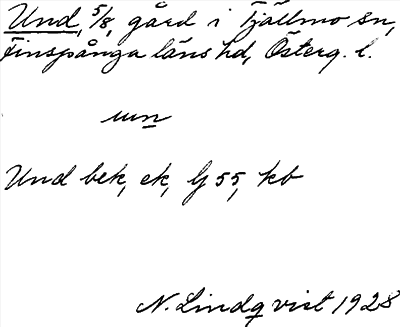 Und, 5/8, gård i Tjällmo sn,
Finspånga läns hd, Österg. l.
un
Und bek, ek, lj 55, kb
N. Lindqvist 1928